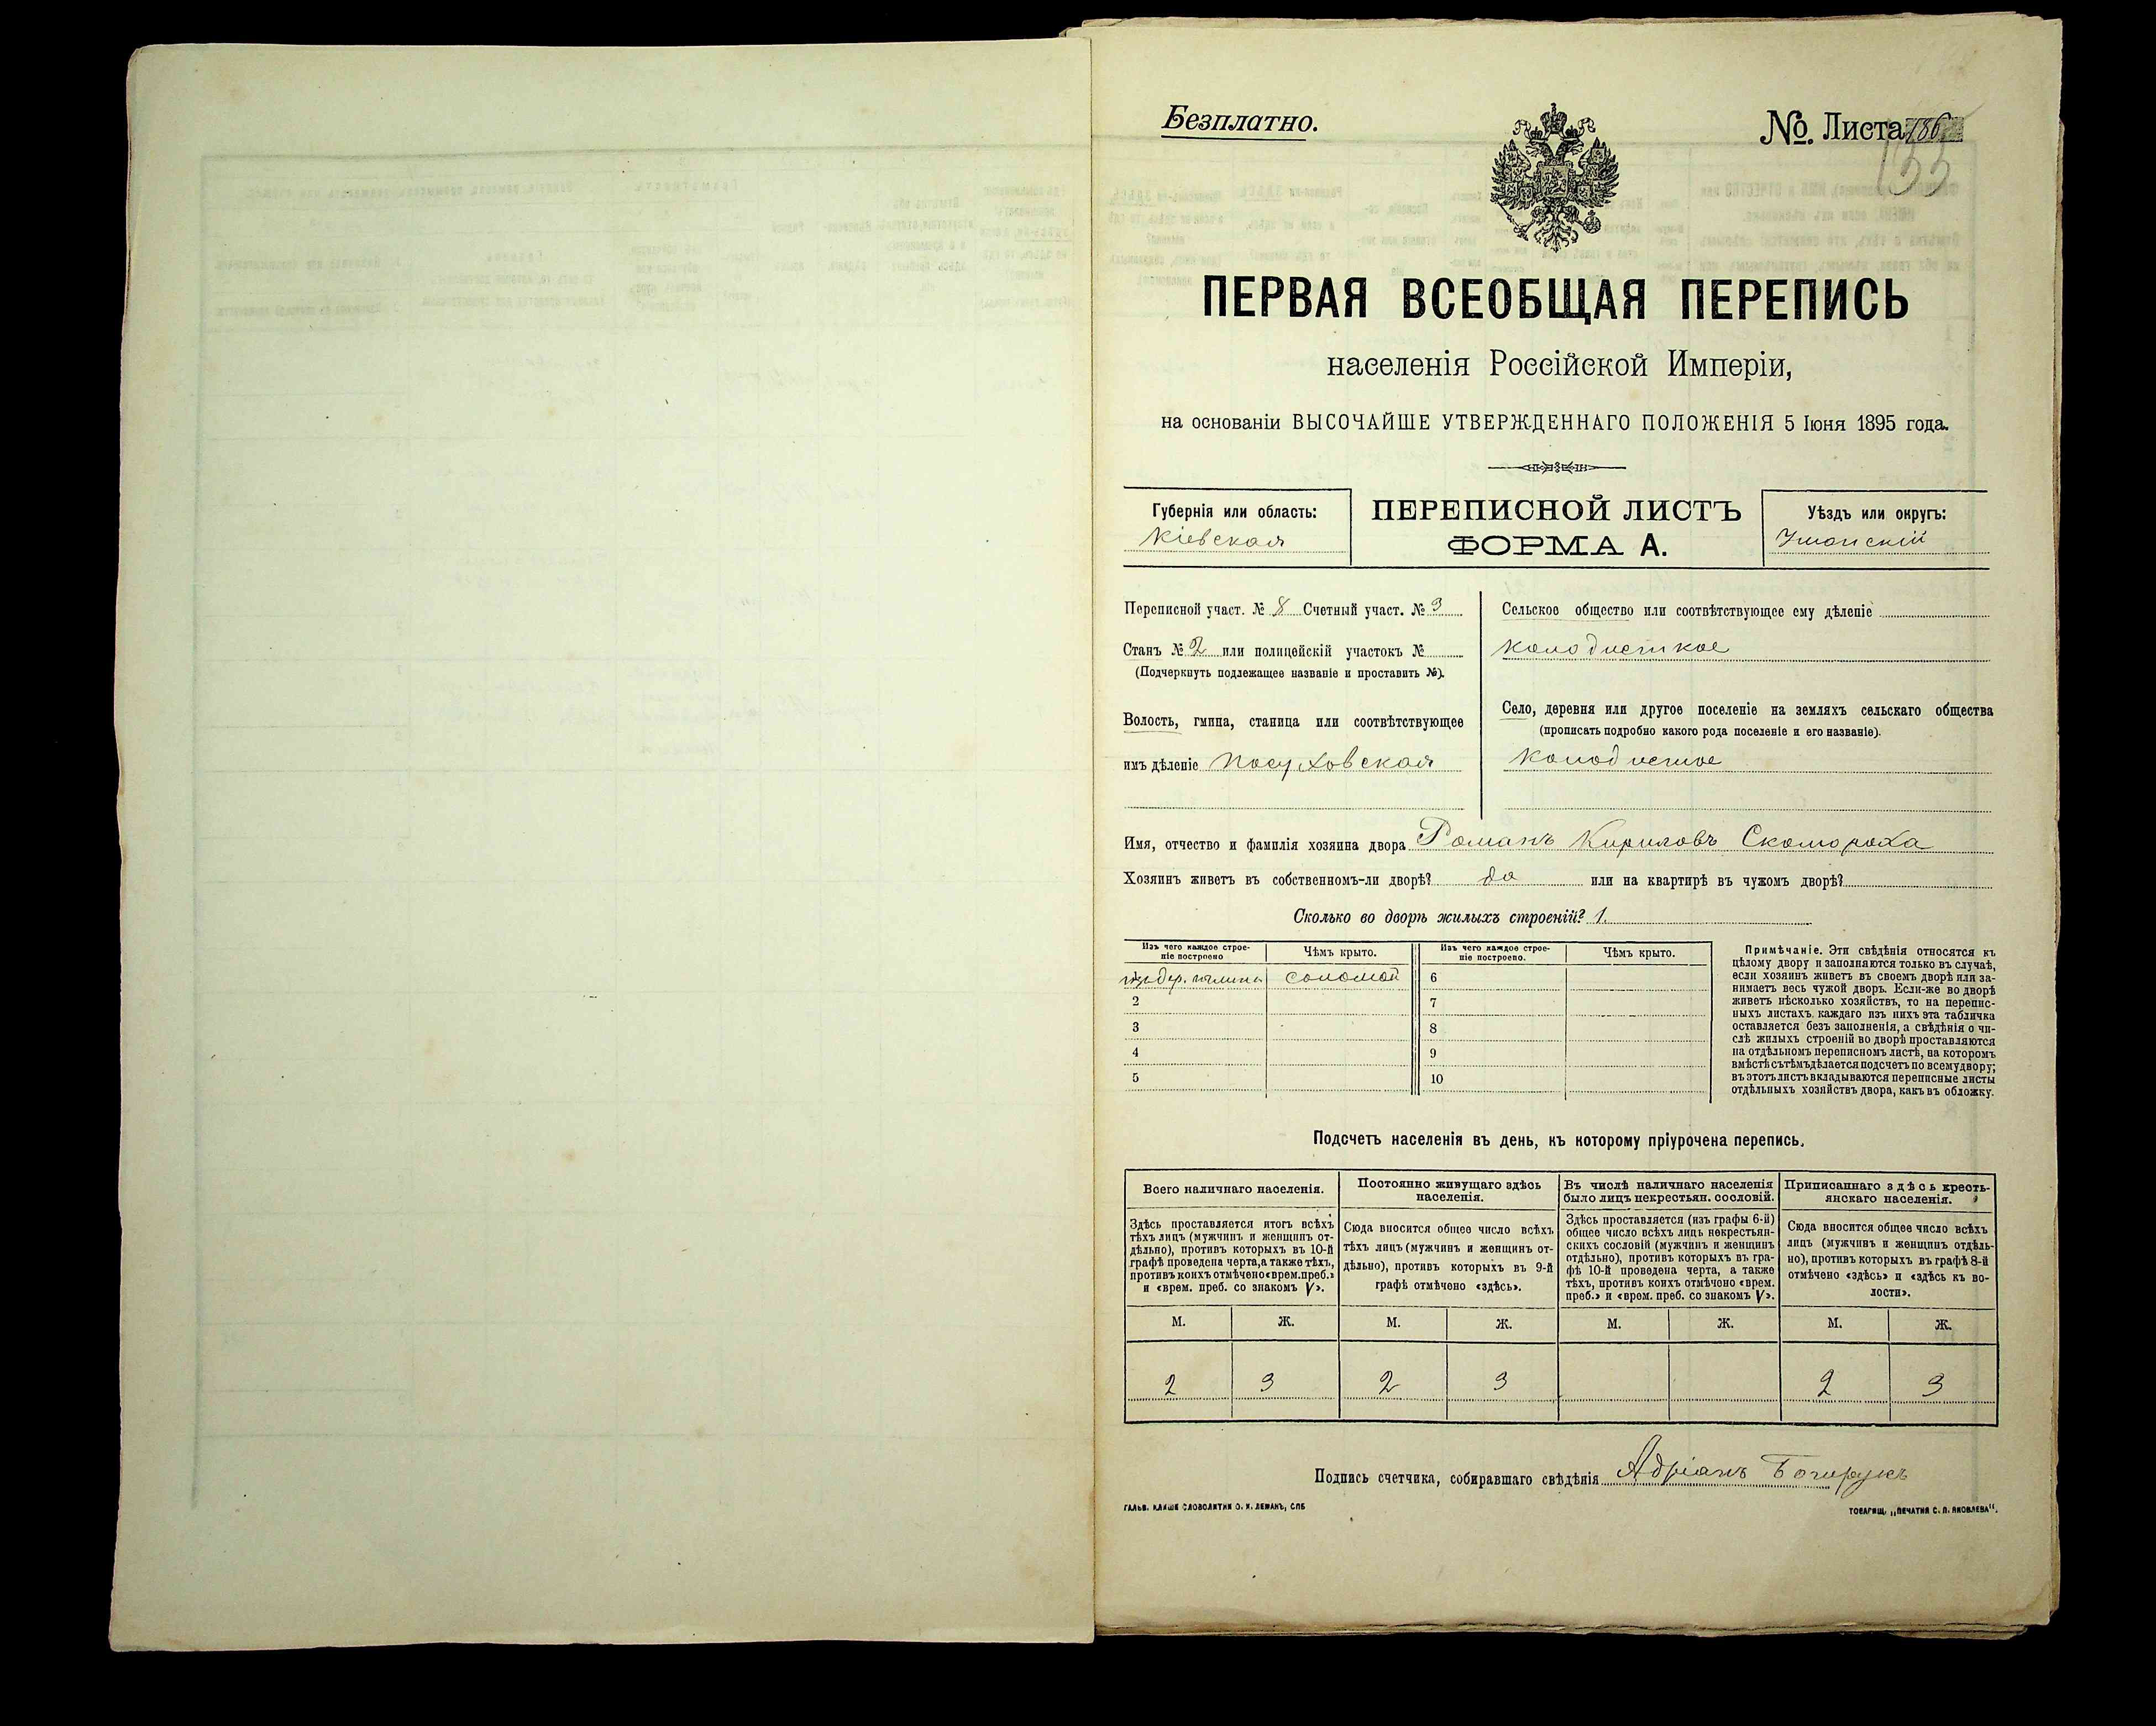 Безплатно.
№. Листа 186
133
ПЕРВАЯ ВСЕОБЩАЯ ПЕРЕПИСЬ
населенія Россійской Имперіи,
на основаніи ВЫСОЧАЙШЕ УТВЕРЖДЕННАГО ПОЛОЖЕНІЯ 5 Іюня 1895 года.
Губернія или область:
Кіевская
ПЕРЕПИСНОЙ ЛИСТЪ
ФОРМА А.
Уѣздъ или округъ:
Уманскій
Переписной участ. № 8 Счетный участ. № 3
Станъ № 2 или полицейскій участокъ №
(Подчеркнуть подлежащее названіе и проставить №).
Волость, гмина, станица или соотвѣтствующее
имъ дѣленіе Посуховская
Сельское общество или соотвѣтствующее ему дѣленіе
Колодисткое
Село, деревня или другое поселеніе на земляхъ сельскаго общества
(прописать подробно какого рода поселеніе и его названіе).
Колодистое
Имя, отчество и фамилія хозяина двора Романъ Кириловъ Скомороха
Хозяинъ живетъ въ собственномъ-ли дворѣ? да или на квартирѣ въ чужомъ дворѣ?
Сколько во дворѣ жилыхъ строеній? 1.
Изъ чего каждое строе-
ніе построено
Чѣмъ крыто.
Изъ чего каждое строе-
ніе построено.
Чѣмъ крыто.
соломой
6
2
7
3
8
4
9
5
10
Примѣчаніе. Эти свѣдѣнія относятся къ
цѣлому двору и заполняются только въ случаѣ,
если хозяинъ живетъ въ своемъ дворѣ или за-
нимаетъ весь чужой дворъ. Если-же во дворѣ
живетъ нѣсколько хозяйствъ, то на перепис-
ныхъ листахъ каждаго изъ нихъ эта табличка
оставляется безъ заполненія, а свѣдѣнія о чи-
слѣ жилыхъ строеній во дворѣ проставляются
на отдѣльномъ переписномъ листѣ, на которомъ
вмѣстѣ съ тѣмъ дѣлается подсчетъ по всему двору;
въ этотъ листъ вкладываются переписные листы
отдѣльныхъ хозяйствъ двора, какъ въ обложку.
Подсчетъ населенія въ день, къ которому пріурочена перепись.
Всего наличнаго населенія.
Здѣсь проставляется итогъ всѣхъ
тѣхъ лицъ (мужчинъ и женщинъ от-
дѣльно), противъ которыхъ въ 10-й
графѣ проведена черта, а также тѣхъ,
противъ коихъ отмѣчено «врем. преб.»
и «врем. преб. со знакомъ V».
Постоянно живущаго здѣсь
населенія.
Сюда вносится общее число всѣхъ
тѣхъ лицъ (мужчинъ и женщинъ от-
дѣльно), противъ которыхъ въ 9-й
графѣ отмѣчено «здѣсь».
Въ числѣ наличнаго населенія
было лицъ некрестьян. сословій.
Здѣсь проставляется (изъ графы 6-й)
общее число всѣхъ лицъ некрестьян-
скихъ сословій (мужчинъ и женщинъ
отдѣльно), противъ которыхъ въ гра-
фѣ 10-й проведена черта, а также
тѣхъ, противъ коихъ отмѣчено «врем.
преб.» и «врем. преб. со знакомъ V».
Приписаннаго здѣсь кресть-
янскаго населенія.
Сюда вносится общее число всѣхъ
лицъ (мужчинъ и женщинъ отдѣль-
но), противъ которыхъ въ графѣ 8-й
отмѣчено «здѣсь» и «здѣсь къ во-
лости».
М. Ж. М. Ж. М. Ж. М. Ж.
2 3 2 3 2 3
Подпись счетчика, собиравшаго свѣдѣнія Адріанъ
ГАЛЬВ. КЛИШЕ СЛОВОЛИТНИ О. И. ЛЕМАНЪ, СПБ
ТОВАРИЩ. „ПЕЧАТНЯ С. П. ЯКОВЛЕВА“.